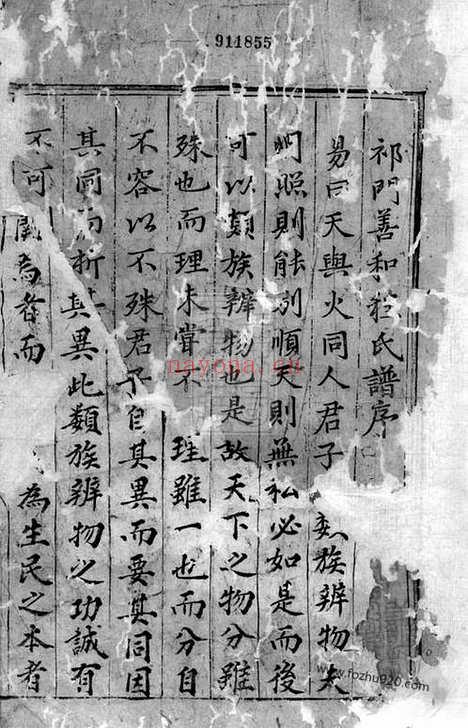 911855
祁門善和程氏譜序
易曰天與火同人君子 類族辨物夫
明照則能別順天則無私必如是而後
可以類族辨物也是故天下之物分雖
殊也而理未嘗不 理雖一也而分自
不容以不殊君子自其異而要其同因
其同而析其異此類族辨物之功誠有
不可 為者而 為生民之本者
nayona.cn
www.fozhu920.com